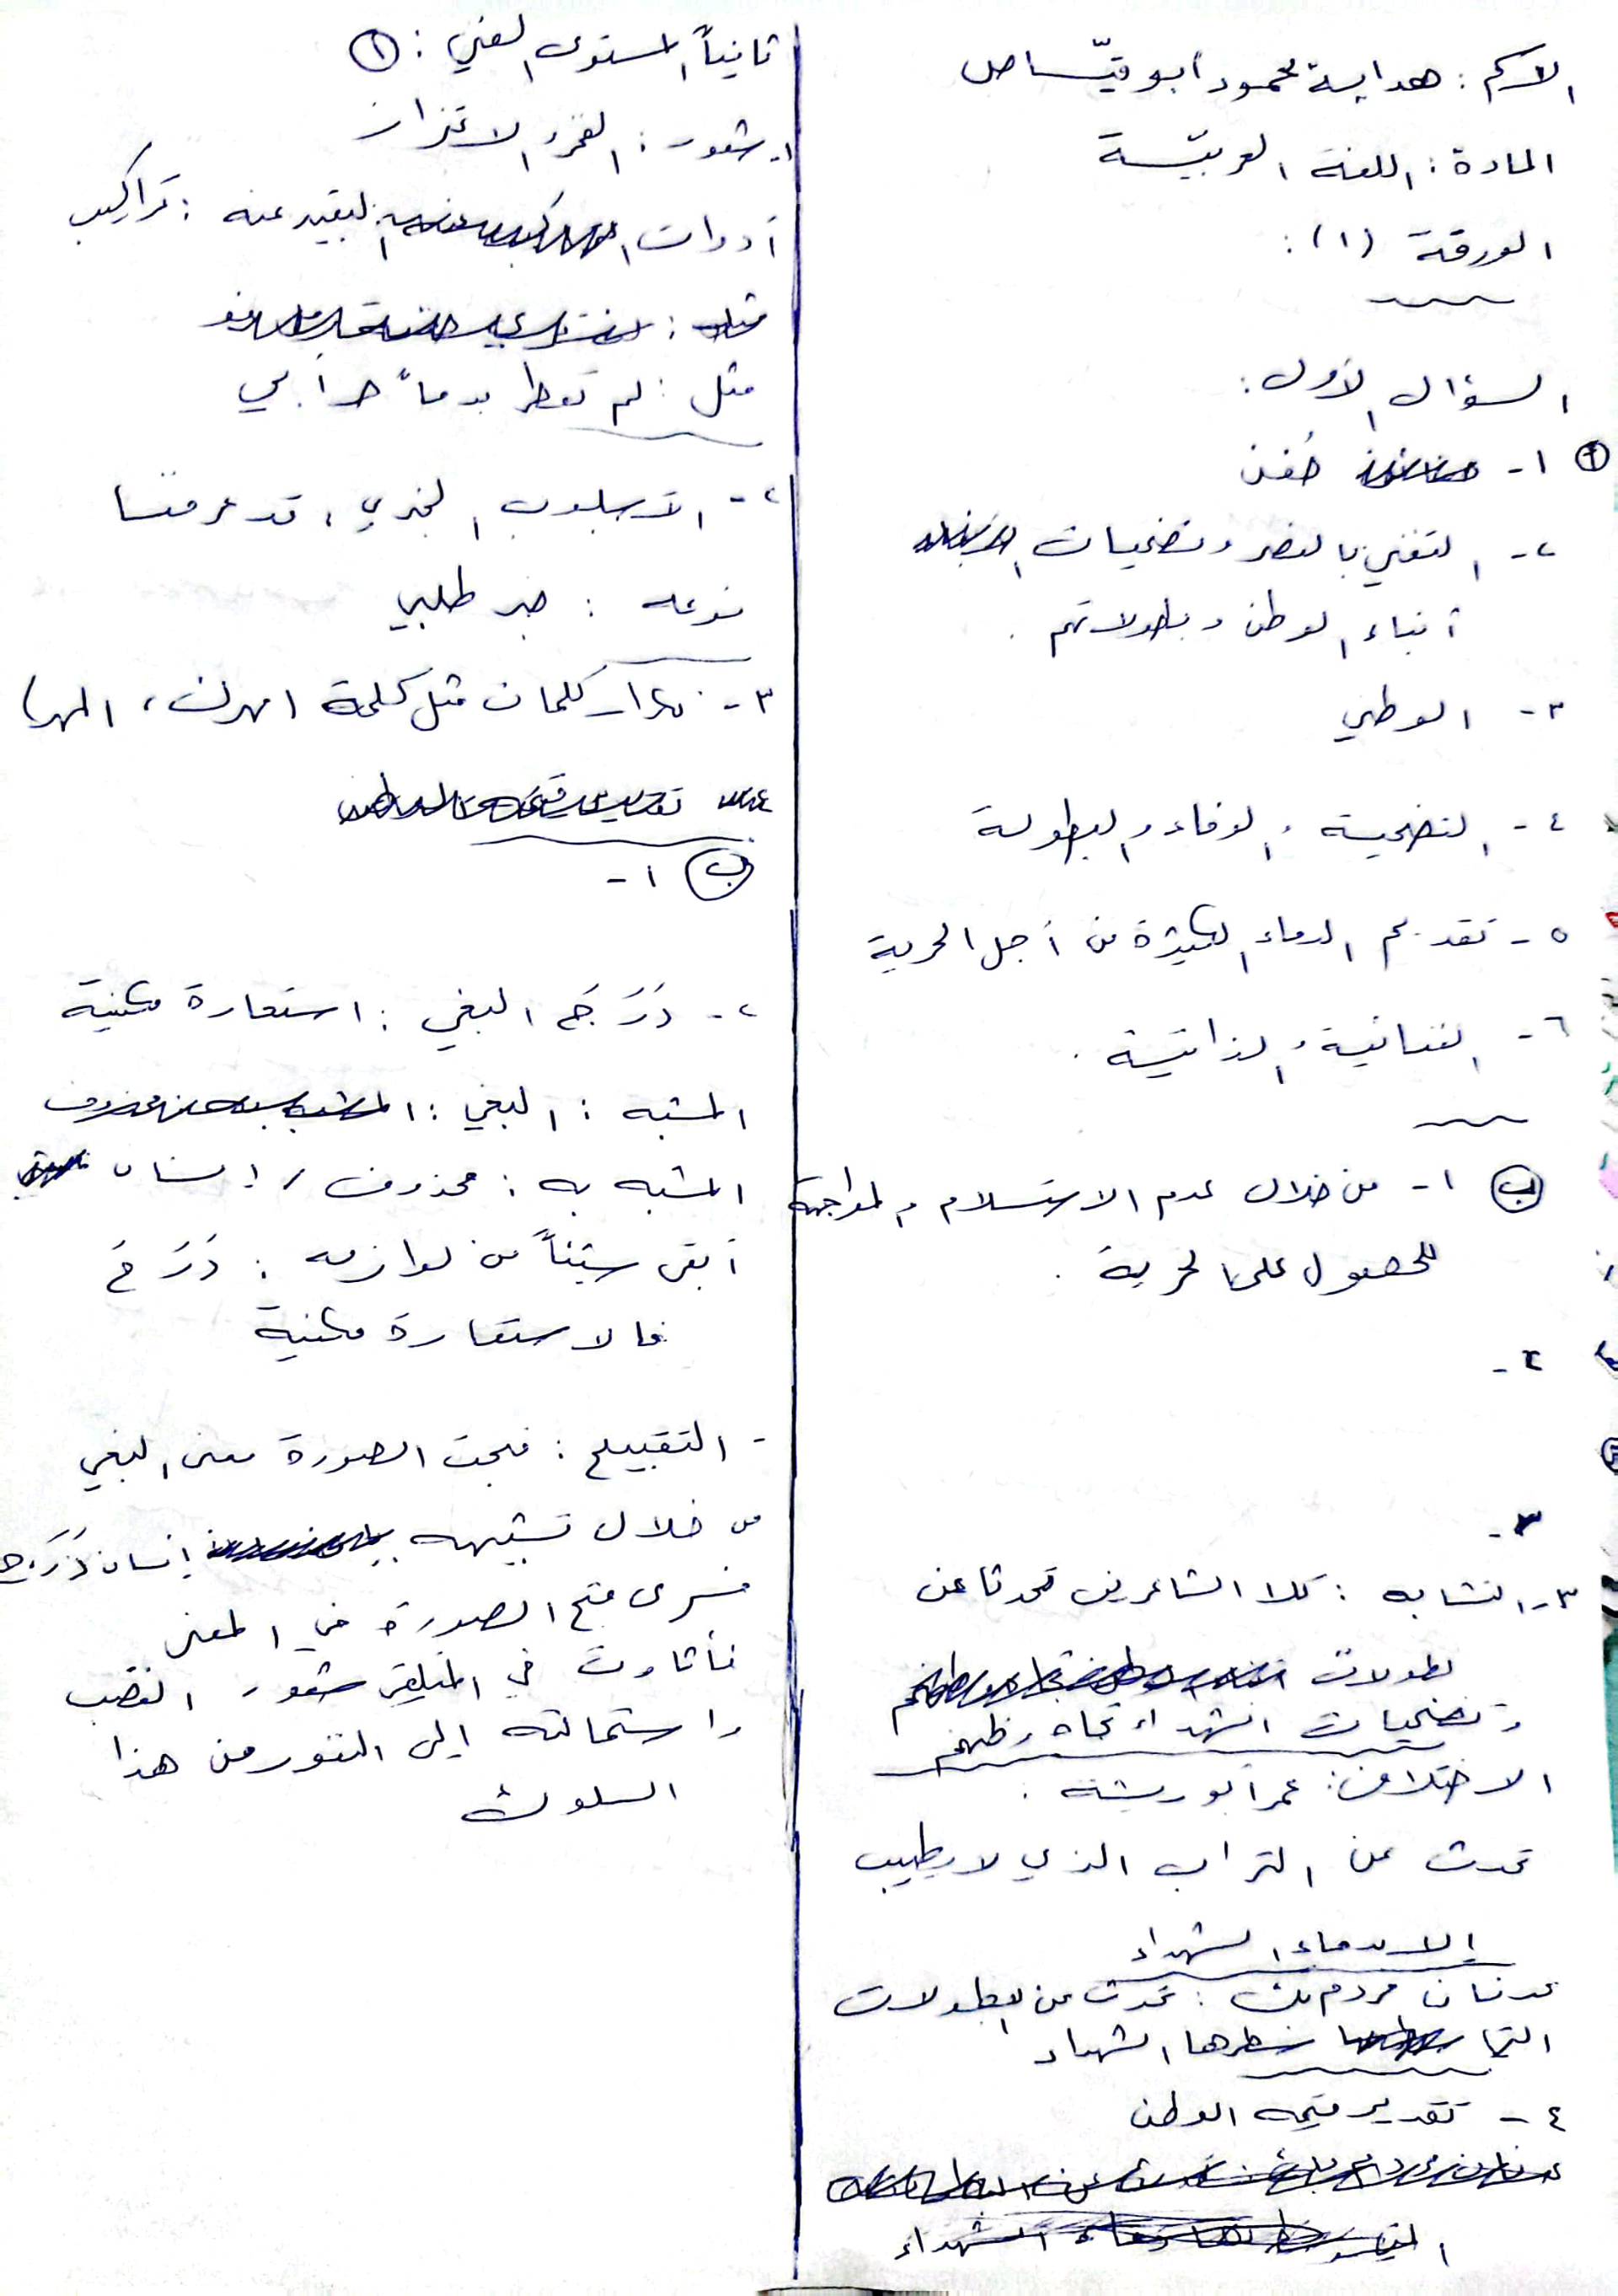 الاسم : هداية محمود أبو قيّاص
المادة : اللغة العربيّة
الورقة (١) :
السؤال الأول :
أ ١- خُفن
٢- التغني بالنصر وتضحيات
أبناء الوطن وبطولاتهم .
٣- الوطني
٤- التضحية والوفاء والبطولة
٥- تقديم الدماء الكثيرة من أجل الحرية
٦- الغنائية والذاتية .
ب ١- من خلال عدم الاستسلام والمواجهة
للحصول على الحرية .
٢-
٣-
٣- التشابه : كلا الشاعرين تحدثا عن
بطولات
وتضحيات الشهداء تجاه وطنهم
الاختلاف : عمر أبو ريشة :
تحدث عن التراب الذي لا يطيب
إلا بدماء الشهداء
عدنان مردم بك : تحدث عن البطولات
التي سطرها الشهداء
٤- تقدير قيمة الوطن
ثانياً المستوى الفني : ١
١- شعور : الفخر والاعتزاز
أدوات التعبير عنه : تراكيب
مثل :
مثل : لم تعطر بدما حرٍّ أبي
٢- الأسلوب الخبري ، قد عرفنا
نوعه : خبر طلبي
٣- تكرار كلمات مثل كلمة (مهرك ، المهر)
ب ١-
٢- دَرَجَ البغي : استعارة مكنية
المشبه : البغي :
المشبه به : محذوف / إنسان
أبقى شيئاً من لوازمه : دَرَجَ
فالاستعارة مكنية
- التقبيح : قبحت الصورة معنى البغي
من خلال تشبيهه بإنسان دَرَج
فسرى قبح الصورة في المعنى
فأثارت في المتلقي شعور الغضب
واستمالته إلى النفور من هذا
السلوك